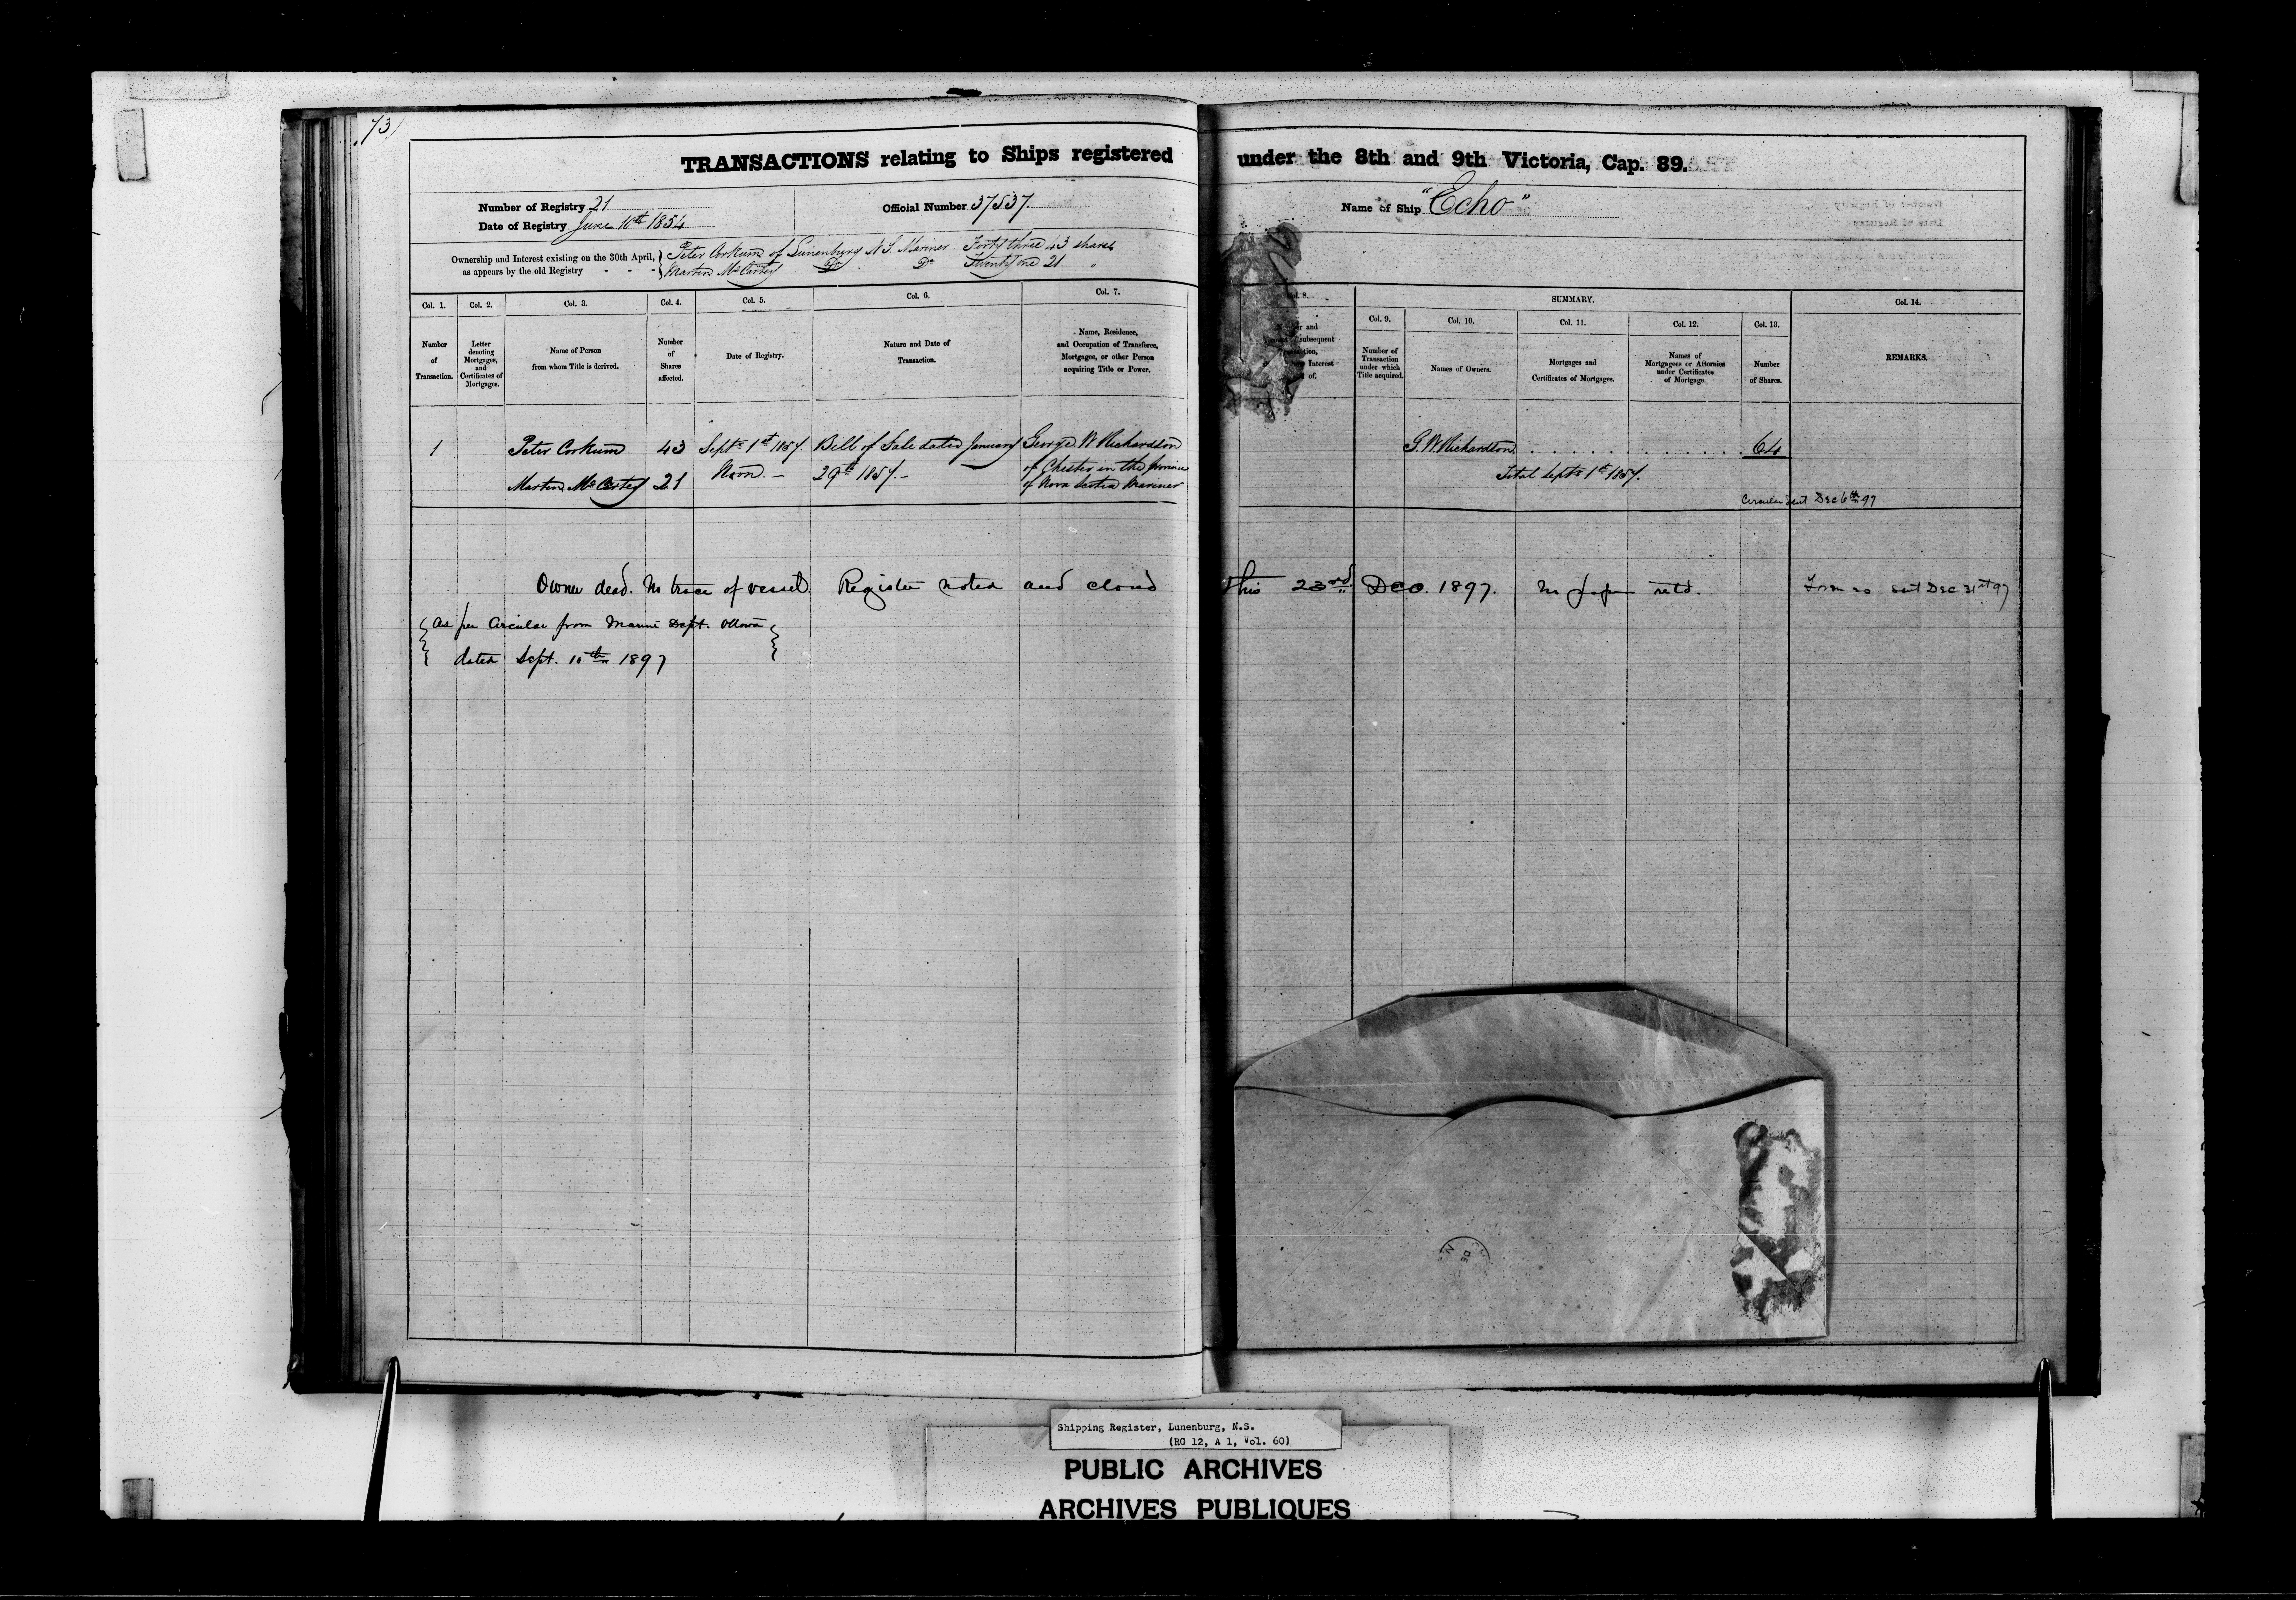 73
TRANSACTIONS relating to Ships registered under the 8th and 9th Victoria, Cap. 89.
Number of Registry 21
Date of Registry June 10th 1854
Official Number 37537
Name of Ship "Echo"
Ownership and Interest existing on the 30th April,
as appears by the old Registry - - -
Peter Corkum of Lunenburg N S. Mariner Forty three 43 shares
Martin McCarty Do Do Twenty one 21 "
Col. 1.
Number
of
Transaction.
Col. 2.
Letter
denoting
Mortgages,
and
Certificates of
Mortgages.
Col. 3.
Name of Person
from whom Title is derived.
Col. 4.
Number
of
Shares
affected.
Col. 5.
Date of Registry.
Col. 6.
Nature and Date of
Transaction.
Col. 7.
Name, Residence,
and Occupation of Transferee,
Mortgagee, or other Person
acquiring Title or Power.
8.
and
subsequent
Interest
of.
SUMMARY.
Col. 9.
Number of
Transaction
under which
Title acquired.
Col. 10.
Names of Owners.
Col. 11.
Mortgages and
Certificates of Mortgages.
Col. 12.
Names of
Mortgagees or Attornies
under Certificates
of Mortgage.
Col. 13.
Number
of Shares.
Col. 14.
REMARKS.
1 Peter Corkum 43 Septr 1st 1857. Bill of Sale dated January George W Richardson
Martin McCarty 21 Noon. - 29th 1857. - of Chester in the province
of Nova Scotia Mariner
G. W Richardson . . . . . . . . . . . . 64
Total Septr 1st 1857.
Circular sent Dec 6th 97
Owner dead. No trace of vessel. Register noted and closed this 23rd Dec. 1897. No papers retd. Form 20 sent Dec 31st 97
As per Circular from Marine Dept. Ottawa
dated Sept. 10th 1897
Shipping Register, Lunenburg, N.S.
(RG 12, A 1, Vol. 60)
PUBLIC ARCHIVES
ARCHIVES PUBLIQUES